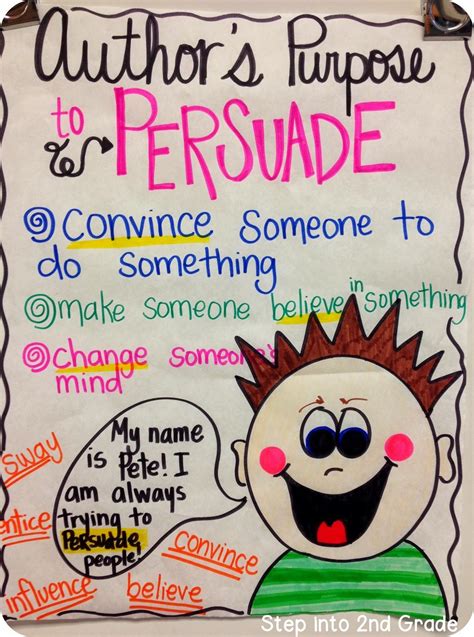 Author's Purpose
to PERSUADE
Convince someone to
do something
make someone believe in something
change someone's
mind
My name
is Pete! I
am always
trying to
Persuade
people!
sway
entice
convince
influence
believe
Step Into 2nd Grade